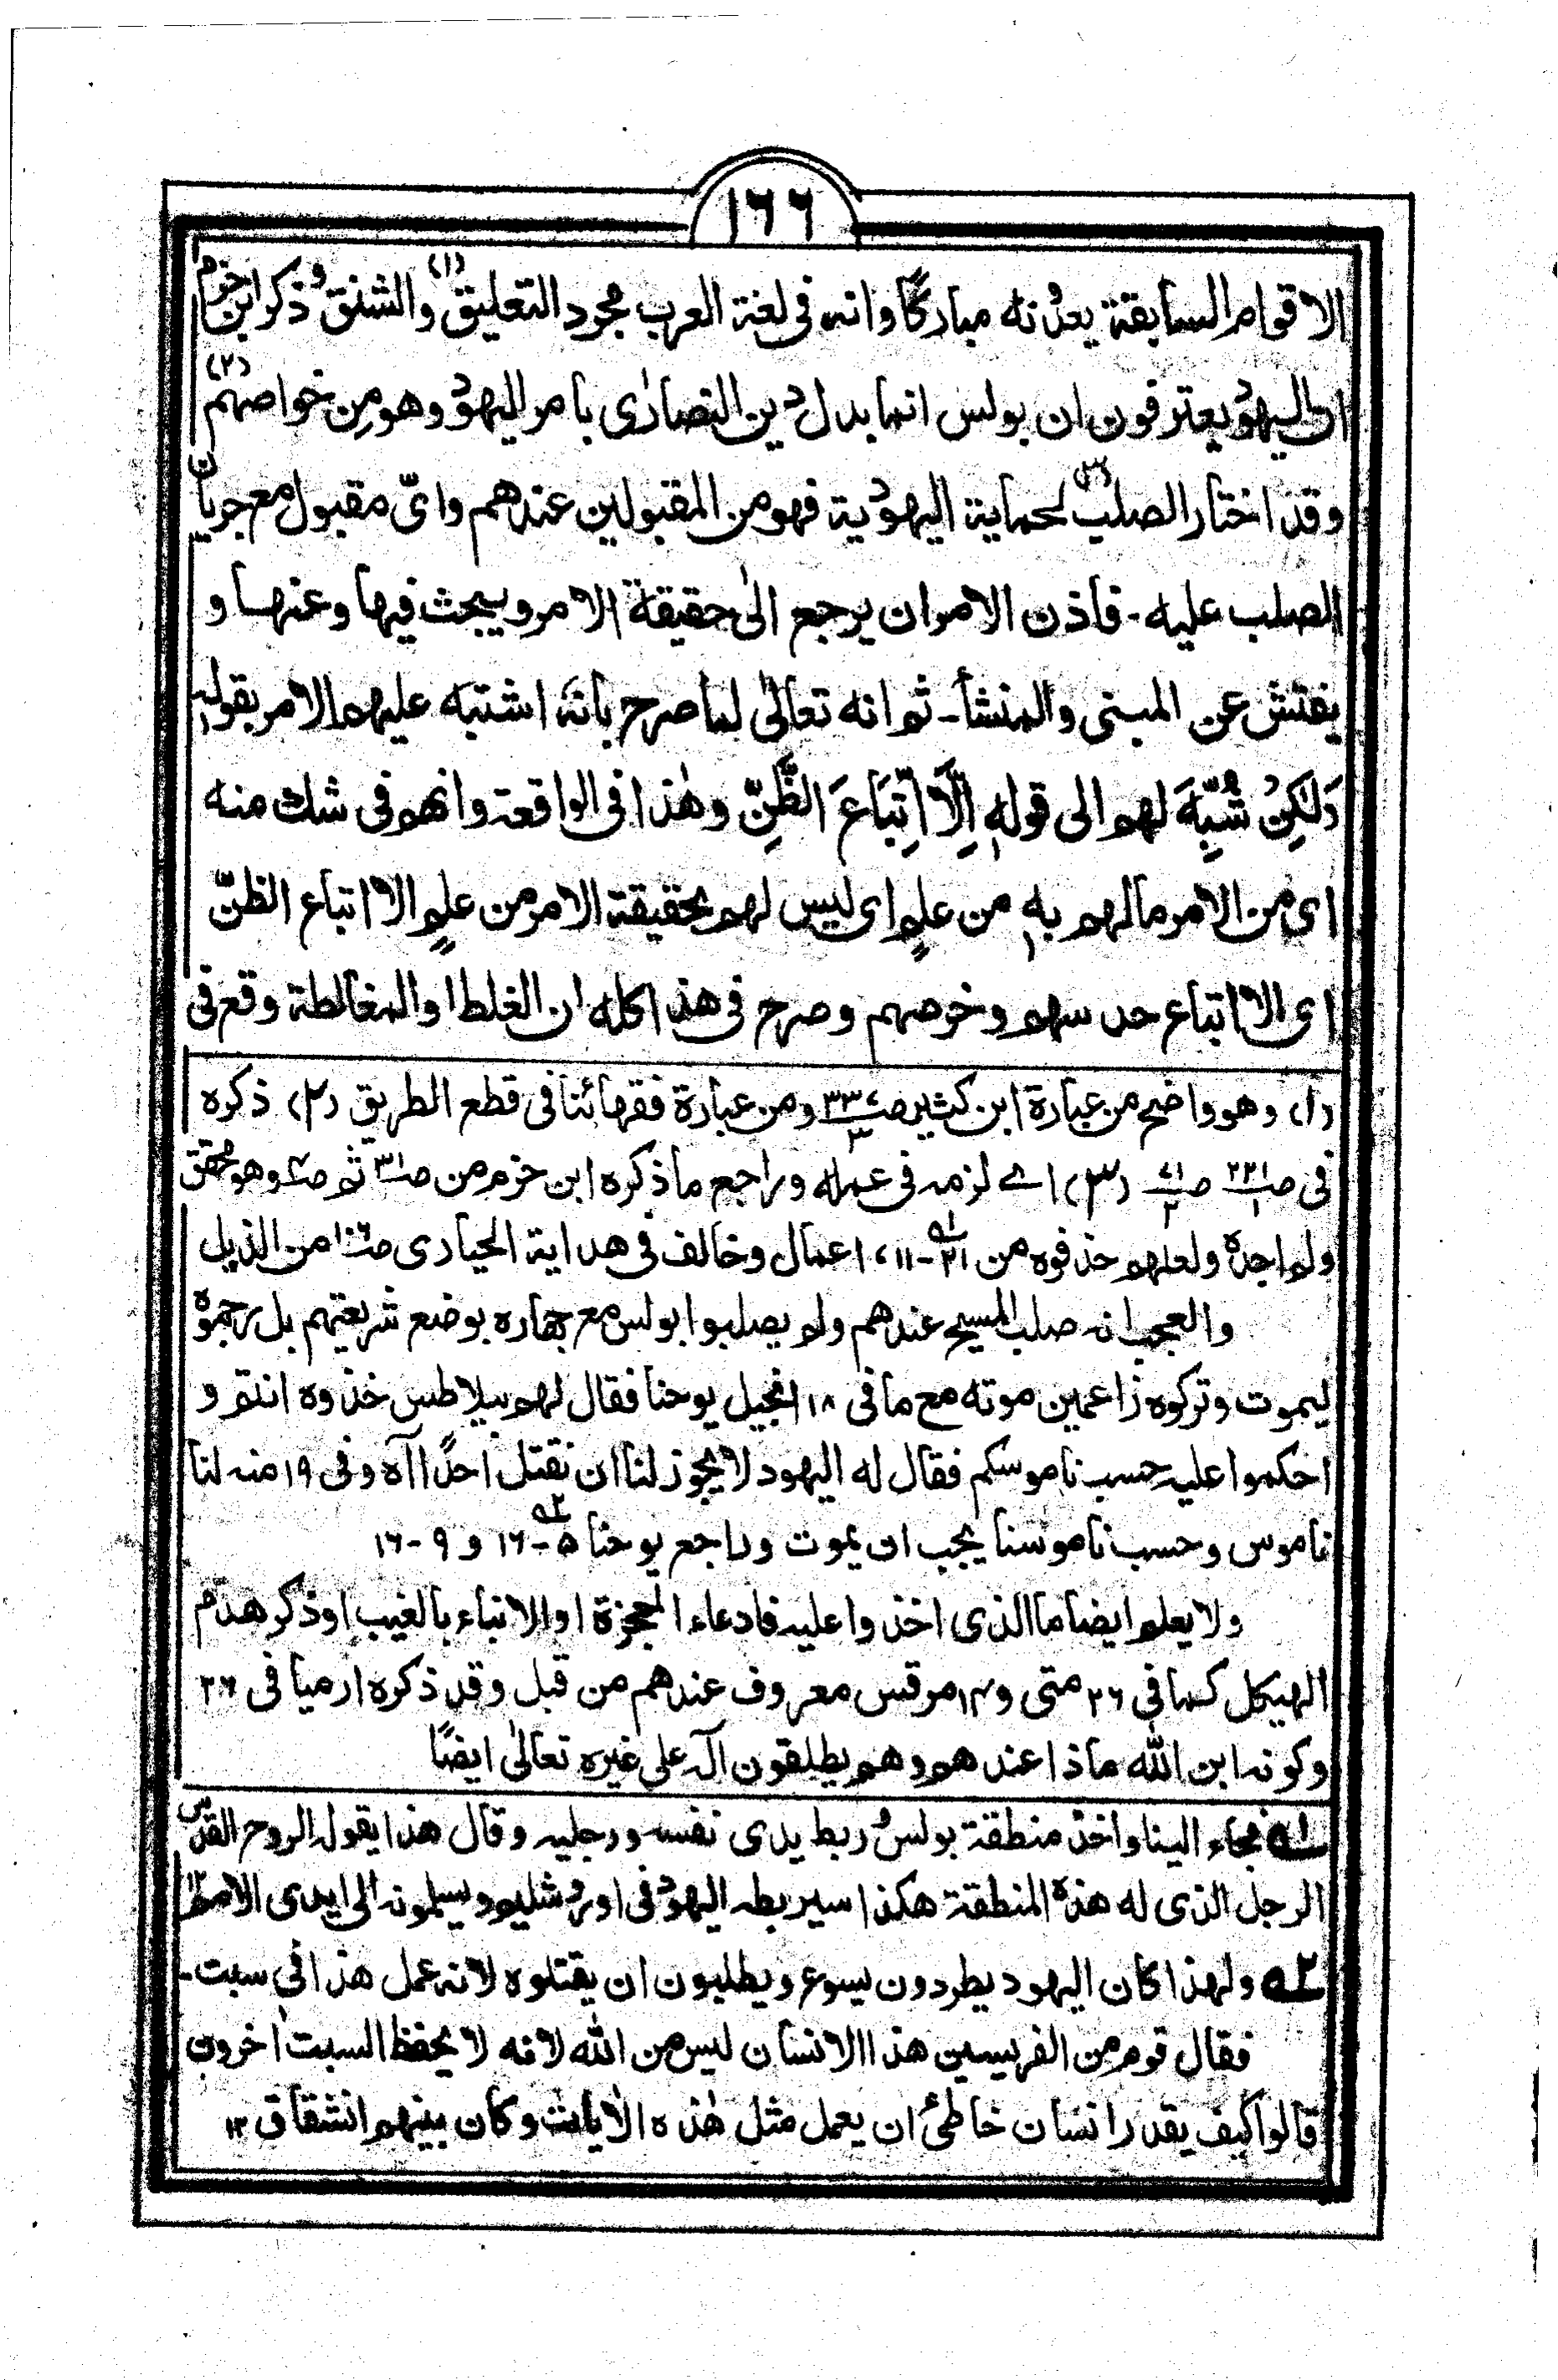 ١٦٦
الاقوام السابقة يعدونه مباركًا وانه فى لغة العرب مجرد التعليق (١) والشنق وذكر ابن حزم
ان اليهود يعترفون ان بولس انما بدل دين النصارٰى بامر اليهود وهو من خواصهم (٢)
وقد اختار الصلب (٣) لحماية اليهودية فهو من المقبولين عندهم واىّ مقبول مع جريان
الصلب عليه - فاذن الامر ان يرجع الىٰ حقيقة الامر ويبحث فيها وعنها و
يفتش عن المبنى والمنشأ - ثم انه تعالٰى لما صرح بانه اشتبه عليهم الامر بقوله
وَلٰكِنْ شُبِّهَ لهم الى قوله اِلَّا اتِّبَاعَ الظَّنِّ وهٰذا فى الواقعة وانهم فى شك منه
اى من الامر مالهم به من علمٍ اى ليس لهم بحقيقة الامر من علمٍ الا اتباع الظنّ
اى الا اتباع حدسهم وخرصهم وصرح فى هذا كله ان الغلط او المغالطة وقع فى
(١) وهو واضح من عبارة ابن كثير ص٣٣٤/٣ ومن عبارة فقهائنا فى قطع الطريق (٢) ذكره
فى ص٢٢١/١ ص٧١/٢ (٣) اے لزمه فى عمله وراجع ما ذكره ابن حزم من ص٣١ ثم وهو محقق
ولم اجده ولعلهم حذفوه من ٢١-١١، اعمال وخالف فى هداية الحيارى من الذيل
والعجب انه صلب المسيح عندهم ولم يصلبوا بولس مع جهاره بوضع شريعتهم بل رجموه
ليموت وتركوه زاعمين موته مع ما فى ١٨ انجيل يوحنا فقال لهم بيلاطس خذوه انتم و
احكموا عليه حسب ناموسكم فقال له اليهود لا يجوز لنا ان نقتل احدًا اٰه وفى ١٩ منه لنا
ناموس وحسب ناموسنا يجب ان يموت وراجع يوحنا ٥-١٦ و ٩-١٦
ولا يعلم ايضا ما الذى اخذوا عليه فادعاء المعجزة او الانباء بالغيب او ذكر هدم
الهيكل كما فى ٢٦ متى و١٤ مرقس معروف عندهم من قبل وقد ذكره ارميا فى ٢٦
وكونه ابن اللّٰه ماذا عندهم وهم يطلقون اٰله على غيره تعالٰى ايضًا
١ه فجاء الينا واخذ منطقة بولس وربط يدى نفسه ورجليه وقال هذا يقوله الروح القدس
الرجل الذى له هذه المنطقة هكذا سيربطه اليهود فى اورشليم ويسلمونه الى ايدى الامم
٢ه ولهذا كان اليهود يطردون يسوع ويطلبون ان يقتلوه لانه عمل هذا فى سبت -
فقال قوم من الفريسيين هذا الانسان ليس من اللّٰه لانه لا يحفظ السبت اخرون
قالوا كيف يقدر انسان خاطئ ان يعمل مثل هٰذه الاٰيات وكان بينهم انشقاق ١٢